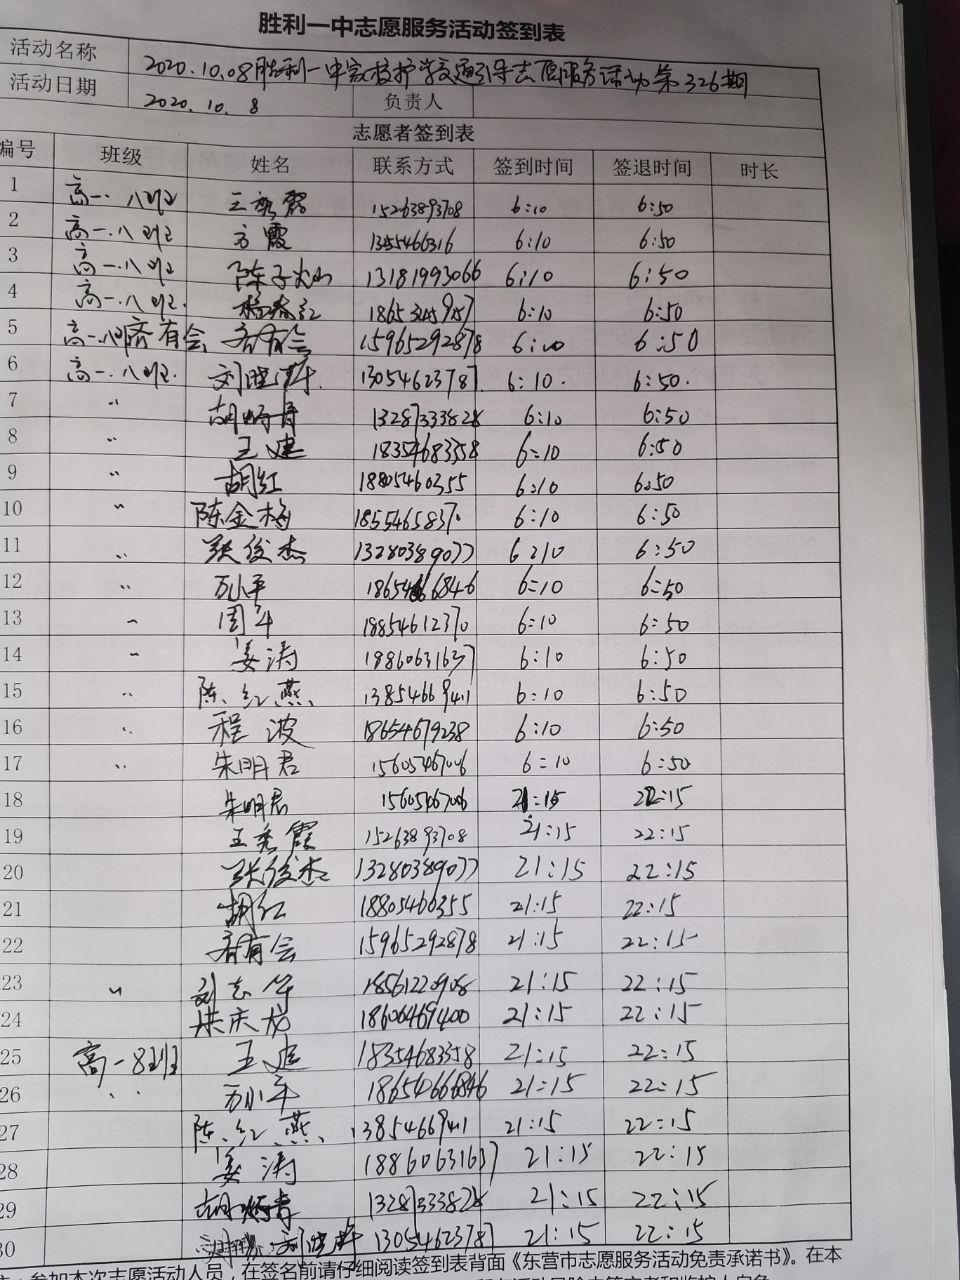 胜利一中志愿服务活动签到表
活动名称 2020.10.08胜利一中家校护学交通引导志愿服务活动第326期
活动日期 2020.10.8 负责人
志愿者签到表
编号 班级 姓名 联系方式 签到时间 签退时间 时长
1 高一.八班 王秀霞 15263893708 6:10 6:50
2 高一.八班 方霞 1355466316 6:10 6:50
3 高一.八班 13181993066 6:10 6:50
4 高一.八班. 杨春红 6:10 6:50
5 高一.八班齐有会 齐有会 15965292878 6:10 6:50
6 高一.八班. 13054623787 6:10. 6:50.
7 〃 13287333828 6:10 6:50
8 〃 王建 18354683358 6:10 6:50
9 〃 胡红 18805460355 6:10 6:50
10 〃 陈金梅 6:10 6:50
11 〃 张俊杰 13280389077 6:10 6:50
12 〃 万小平 18654666846 6:10 6:50
13 〃 周军 18854612370 6:10 6:50
14 〃 姜涛 18860631637 6:10 6:50
15 〃 陈红燕 13854669411 6:10 6:50
16 〃 程波 18654679238 6:10 6:50
17 〃 朱明君 15605467006 6:10 6:50
18 朱明君 15605467006 21:15 22:15
19 王秀霞 15263893708 21:15 22:15
20 张俊杰 13280389077 21:15 22:15
21 胡红 18805460355 21:15 22:15
22 齐有会 15965292878 21:15 22:15
23 〃 刘志华 18561220908 21:15 22:15
24 18606469400 21:15 22:15
25 高一8班 王建 18354683358 21:15 22:15
26 〃 万小平 18654666846 21:15 22:15
27 陈红燕 13854669411 21:15 22:15
28 姜涛 18860631637 21:15 22:15
29 13287333828 21:15 22:15
30 13054623787 21:15 22:15
参加本次志愿活动人员，在签名前请仔细阅读签到表背面《东营市志愿服务活动免责承诺书》。在本